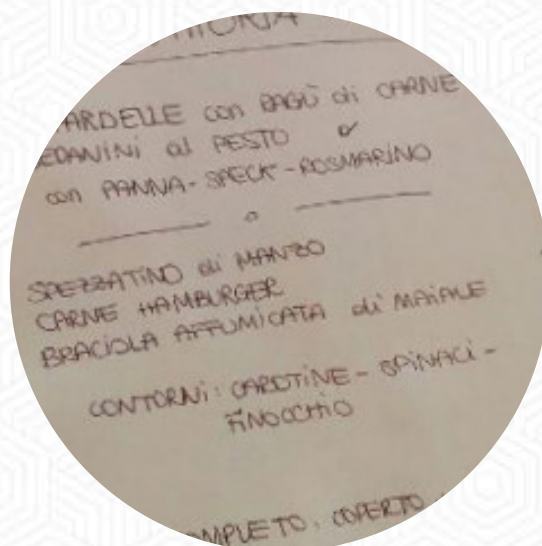 ARDELLE con RAGÙ di CARNE
EDANINI al PESTO o
con PANNA-SPECK-ROSMARINO
o
SPEZZATINO di MANZO
CARNE HAMBURGER
BRACIOLA AFFUMICATA di MAIALE
CONTORNI: CAROTINE - SPINACI -
FINOCCHIO
OMPLETO, COPERTO